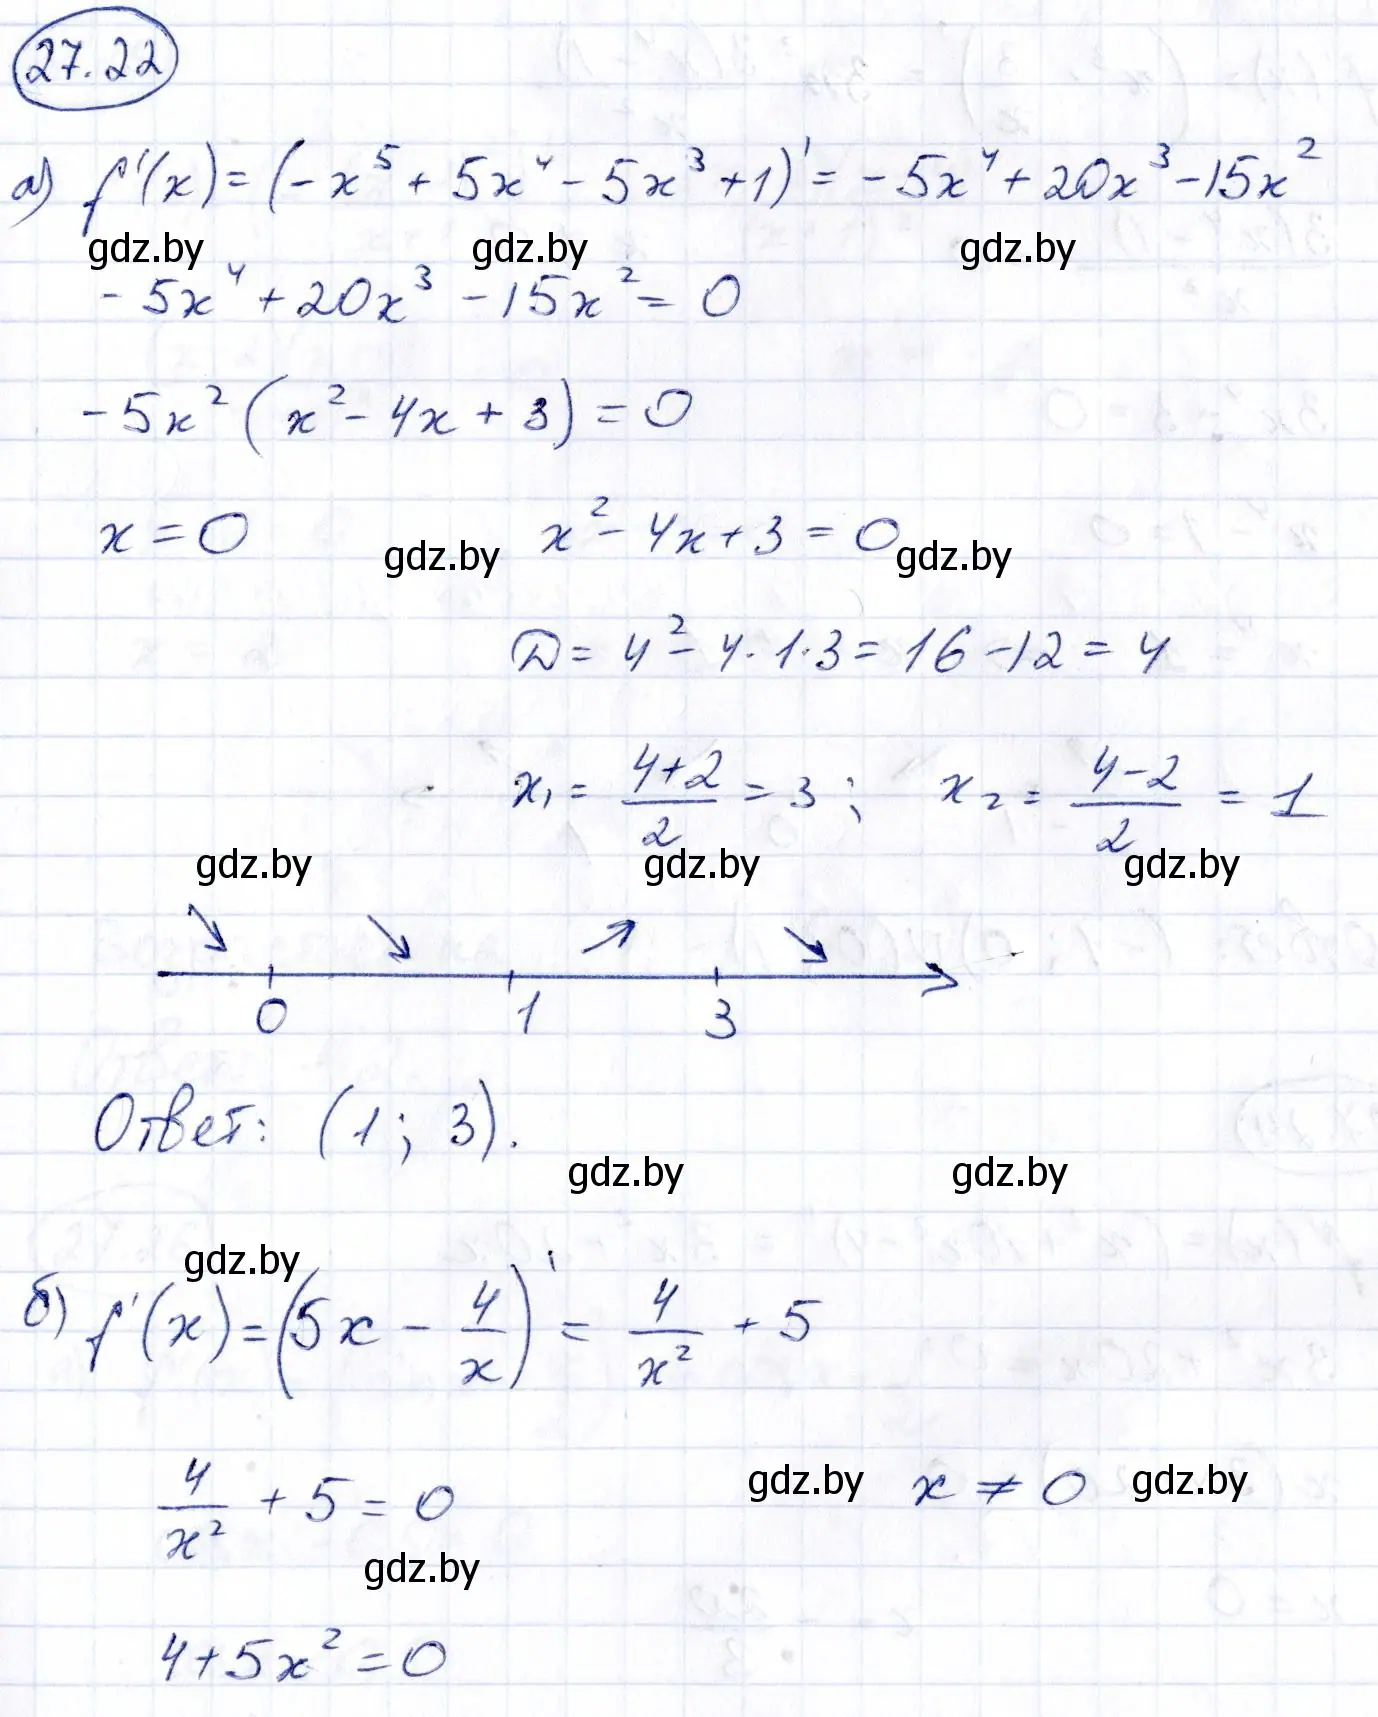 27.22
а) f'(x) = (-x⁵ + 5x⁴ - 5x³ + 1)' = -5x⁴ + 20x³ - 15x²
gdz.by gdz.by gdz.by
-5x⁴ + 20x³ - 15x² = 0
-5x² (x² - 4x + 3) = 0
x = 0 gdz.by x² - 4x + 3 = 0 gdz.by
D = 4² - 4·1·3 = 16 - 12 = 4
x₁ = (4+2)/2 = 3; x₂ = (4-2)/2 = 1
gdz.by gdz.by gdz.by
0 1 3
Ответ: (1; 3).
gdz.by gdz.by
gdz.by
б) f'(x) = (5x - 4/x)' = 4/x² + 5
4/x² + 5 = 0 gdz.by x ≠ 0 gdz.by
gdz.by
4 + 5x² = 0